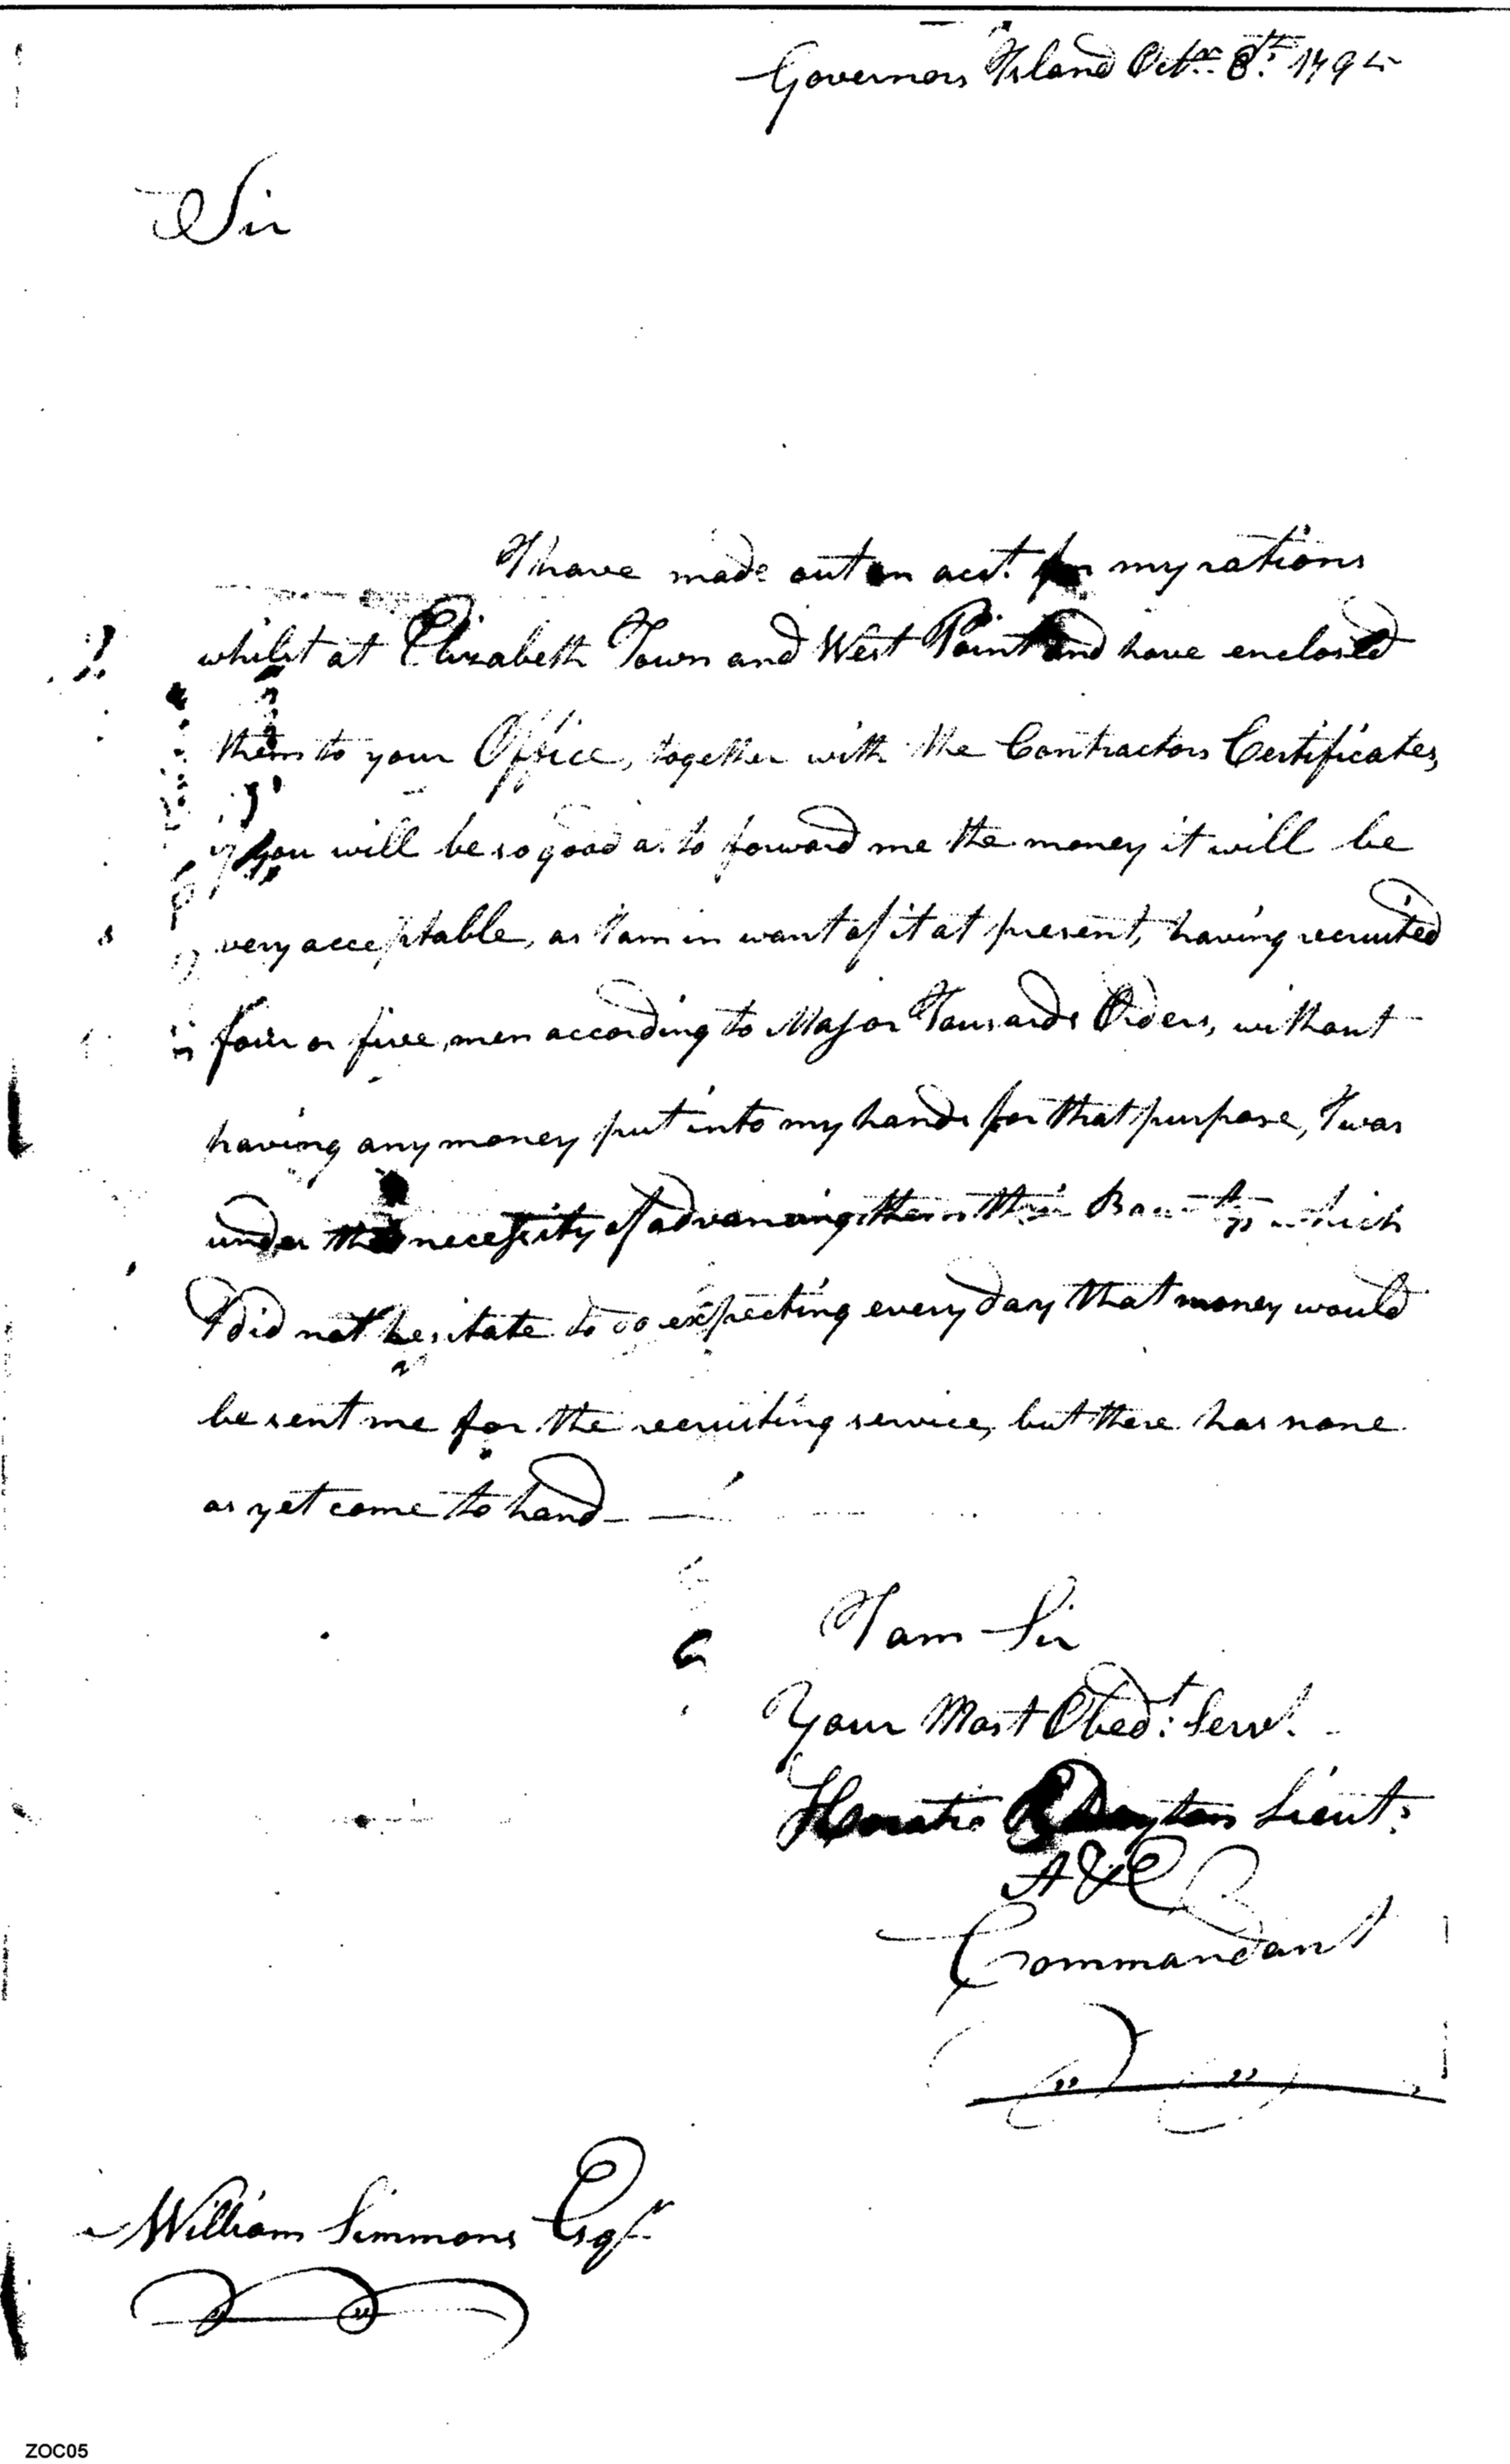 Governors Island Octr. 8th. 179
Sir
I have made out an acct. for my rations
whilst at Elizabeth Town and West Point and have enclosed
them to your Office, together with the Contractors Certificates,
if you will be so good as to forward me the money it will be
very acceptable, as I am in want of it at present, having recruited
four or five, men according to Major Tousards Orders, without
having any money put into my hands for that purpose, I was
under the necessity of advancing them their Bounty which
I did not hesitate to do expecting every day that money would
be sent me for the recruiting service, but there has none
as yet come to hand
I am Sir
Your Most Obedt: Servt.
Horatio R Dayton Lieut:
A & E
Commandant
William Simmons Esqr.
ZOC05